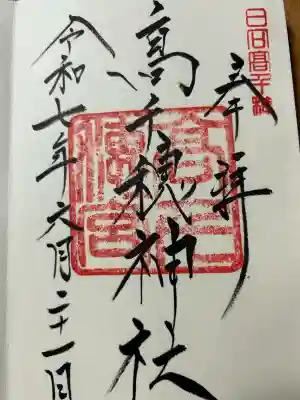 日向高千穂
奉拝
高千穂神社
令和七年六月二十一日